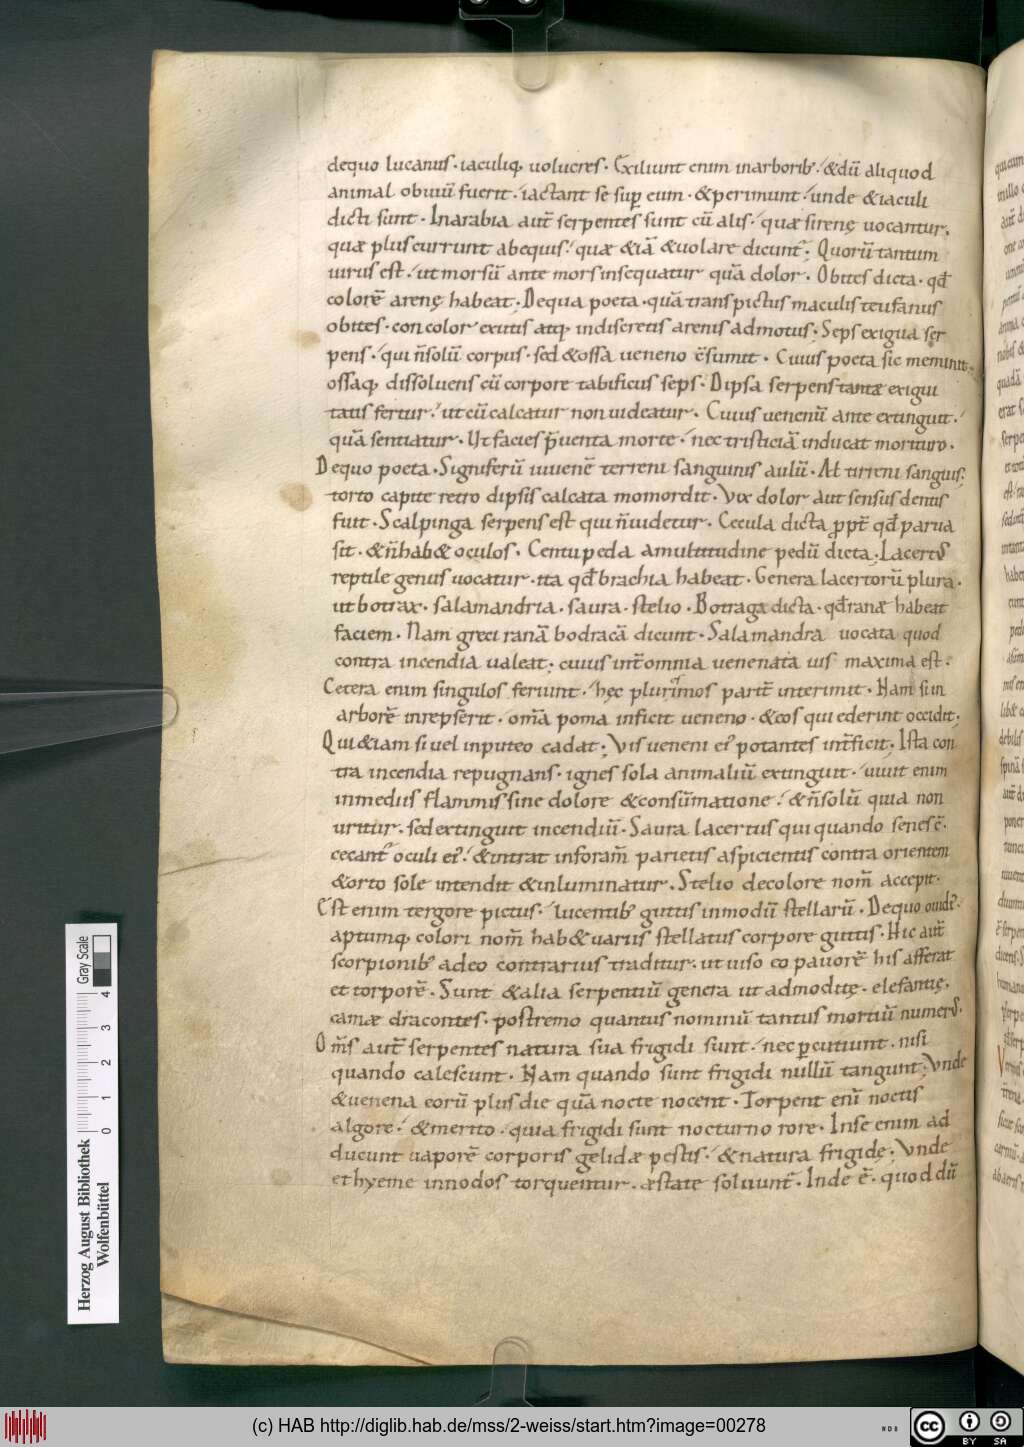 dequo lucanus · iaculiq; uolucres · Exiliunt enim inarborib; · &dū aliquod
animal obuiū fuerit · iactant se sup eum · &perimunt · unde &iaculi
dicti sunt · Inarabia aut̄ serpentes sunt cū alis · quæ sirenę uocantur ·
quæ pluscurrunt abequis · quæ &iā &uolare dicunt̄ · Quorū tantum
uirus est · ut morsū ante mors insequatur quā dolor · Obites dicta · qđ
colorē arenę habeat · Dequa poeta · quā trans pictus maculis teufanus
obites · concolor exutis atq; indiscretis arenis admotus · Seps exigua ser
pens · qui n̄solū corpus · sed &ossa ueneno c̄sumit · Cuius poeta sic meminit
ossaq; dissoluens cū corpore tabificus seps · Dipsa serpens tantæ exigui
tatis fertur · ut cū calcatur non uideatur · Cuius uenenū ante extinguit ·
quā sentiatur · Ut facies p̄uenta morte · nec tristiciā inducat morituro ·
Dequo poeta · Signiferū iuuenē terreni sanguinis aulū · At tirreni sanguis;
torto capite retro dipsis calcata momordit · Vix dolor aut sensus dentis
fuit · Scalpinga serpens est qui n̄uidetur · Cecula dicta ppt̄ qđ parua
sit · &n̄hab& oculos · Centupeda amultitudine pedū dicta · Lacertus
reptile genus uocatur · ita qđ brachia habeat · Genera lacertorū plura ·
ut botrax · salamandria · saura · stelio · Botraga dicta · qđ ranæ habeat
faciem · Nam greci ranā bodracā dicunt · Salamandra uocata quod
contra incendia ualeat; cuius int̄ omnia uenenata uis maxima est ·
Cetera enim singulos feriunt · hęc plurimos parit̄ interimit · Nam si in
arborē inrepserit · om̄a poma inficit ueneno · &eos qui ederint occidit;
Qui&iam si uel inputeo cadat; Vis ueneni ei; potantes int̄ficit; Ista con
tra incendia repugnans · ignes sola animaliū extinguit · uiuit enim
inmediis flammis sine dolore &consūmatione · &n̄solū quia non
uritur · sed extinguit incendiū · Saura lacertus qui quando senescē
cecant̄ oculi ei; · &intrat inforam̄ parietis aspicientis contra orientem
&orto sole intendit &inluminatur · Stelio decolore nom̄ accepit ·
Est enim tergore pictus · lucentib; guttis inmodū stellarū · Dequo ouidi;
aptumq; colori nom̄ hab& uariis stellatus corpore guttis · Hic aut̄
scorpionib; adeo contrarius traditur · ut uiso eo pauorē his afferat
et torporē · Sunt &alia serpentiū genera ut admoditę · elefantię ·
camæ dracontes · postremo quantus nominū tantus mortiū numerus ·
Om̄s aut̄ serpentes natura sua frigidi sunt · nec pcutiunt · nisi
quando calescunt · Nam quando sunt frigidi nullū tangunt; Vnde
&uenena eorū plus die quā nocte nocent · Torpent eni noctis
algore · &merito · quia frigidi sunt nocturno rore · Inse enim ad
ducunt uaporē corporis gelidæ pestis · &natura frigidę; Vnde
et hyeme innodos torquentur · æstate soluunt̄ · Inde ē · quod dū
Herzog August Bibliothek
Wolfenbüttel
Gray Scale
0 1 2 3 4
(c) HAB http://diglib.hab.de/mss/2-weiss/start.htm?image=00278
cc BY SA